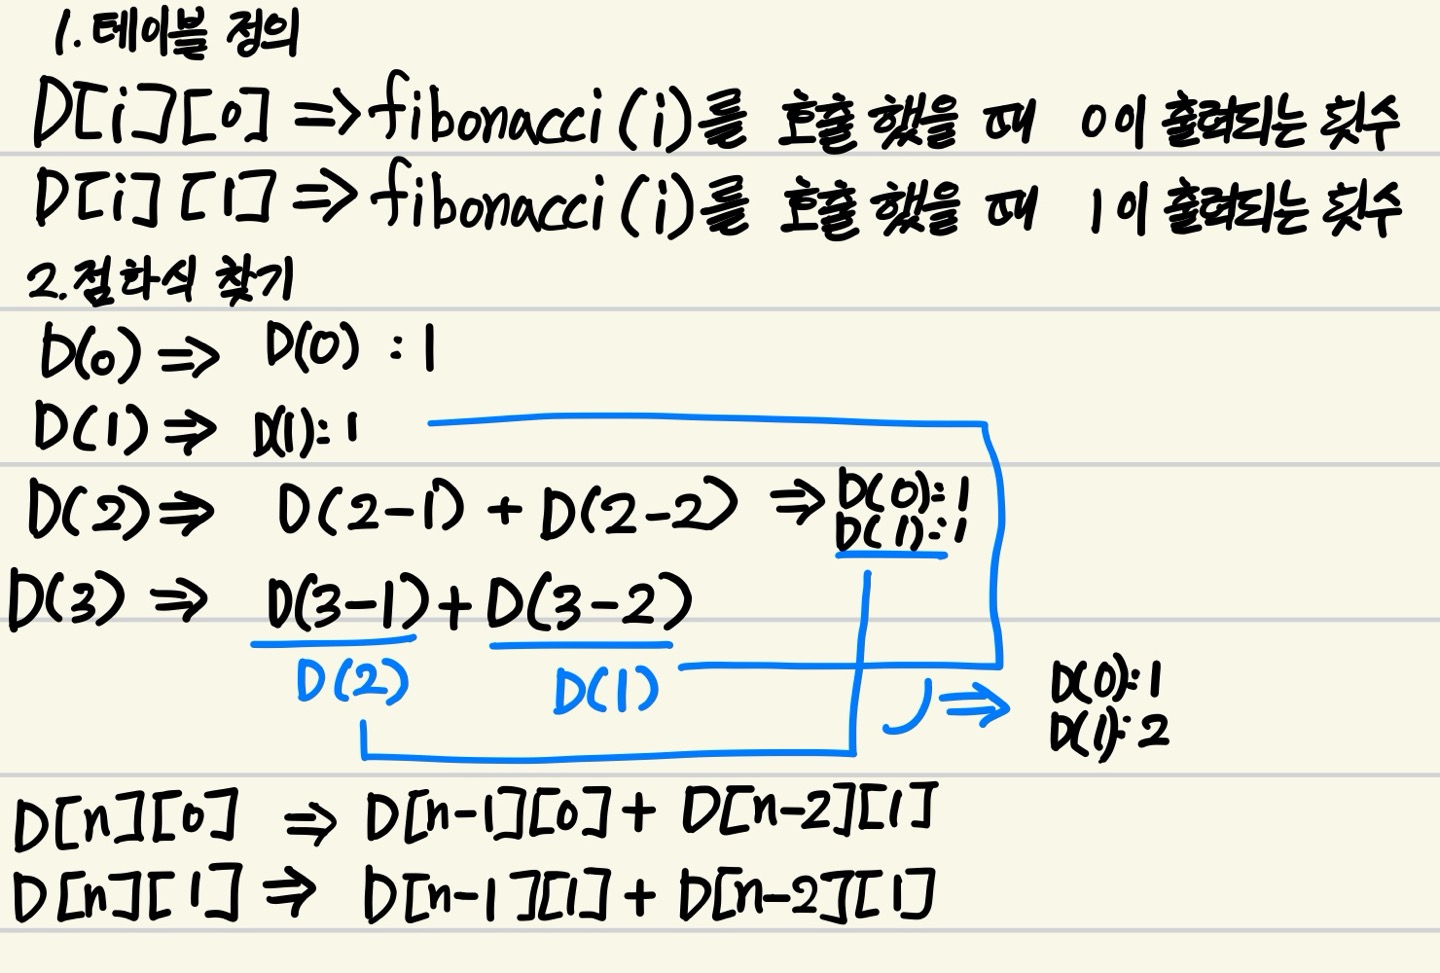 1. 테이블 정의
D[i][0] => fibonacci(i)를 호출 했을 때 0이 출력되는 횟수
D[i][1] => fibonacci(i)를 호출 했을 때 1이 출력되는 횟수
2. 점화식 찾기
D(0) => D(0) : 1
D(1) => D(1): 1
D(2) => D(2-1) + D(2-2) => D(0): 1
D(1): 1
D(3) => D(3-1) + D(3-2)
D(2) D(1)
=> D(0): 1
D(1): 2
D[n][0] => D[n-1][0] + D[n-2][1]
D[n][1] => D[n-1][1] + D[n-2][1]